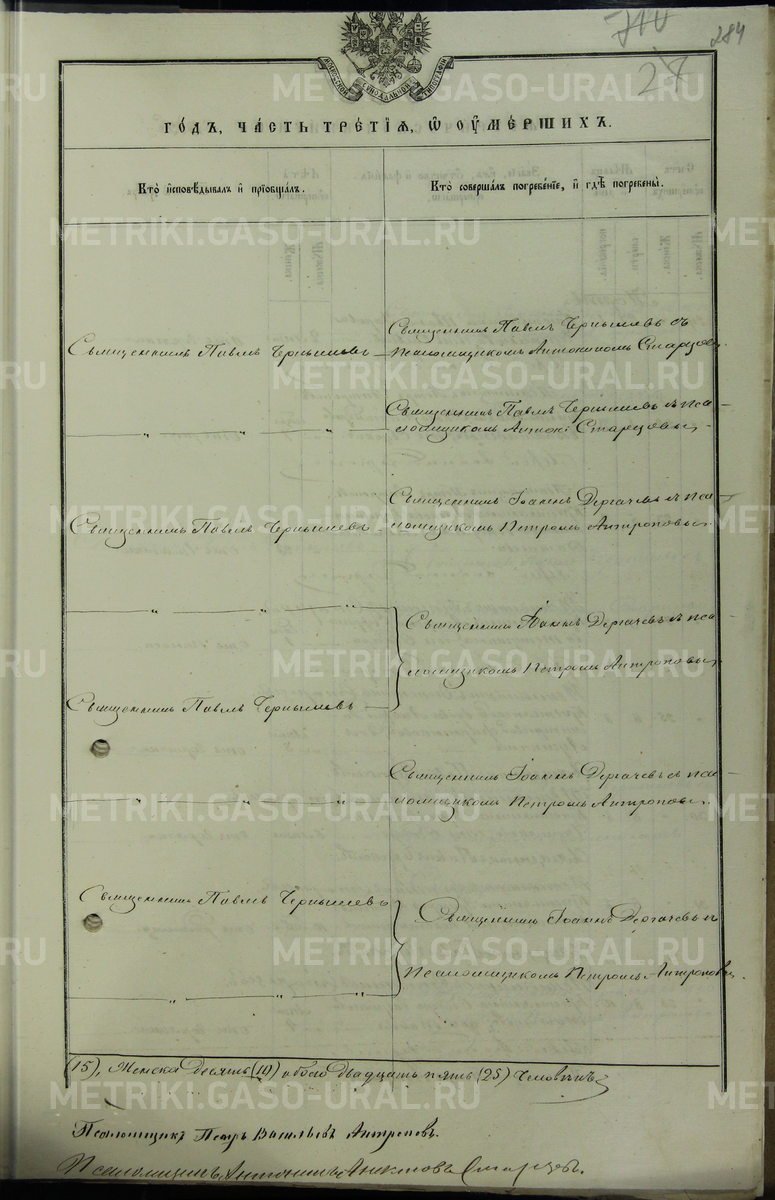 284
27
МОСКОВСКОЙ СѴНОДАЛЬНОЙ ТИПОГРАФІИ
ГО́ДЪ, ЧА́СТЬ ТРЕ́ТІѦ, Ѡ ОУМЕ́РШИХЪ.
Кто̀ и҆сповѣ́дывалъ и҆ прїобща́лъ.
Кто̀ соверша́лъ погребе́нїе, и҆ гдѣ̀ погребены̀.
Священникъ Павелъ Чернышевъ
Священникъ Павелъ Чернышевъ съ
псаломщикомъ Антониномъ Старцов.
— „ — „ — „ —
Священникъ Павелъ Чернышевъ с пса-
ломщикомъ Антон: Старцовым.
Священникъ Павелъ Чернышевъ
Священникъ Іоаннъ Дергачевъ с пса-
ломщикомъ Петромъ Антроповым.
— „ — „ — „
Священникъ Іоаннъ Дергачевъ с пса-
ломщикомъ Петромъ Антроповым.
Священникъ Павелъ Чернышевъ —
— „ — „ — „
Священникъ Іоаннъ Дергачевъ с пса-
ломщикомъ Петромъ Антроповым.
Священникъ Павелъ Чернышевъ
Священникъ Іоаннъ Дергачевъ с
псаломщикомъ Петромъ Антроповым.
— „ — „ —
(15), Женска десять (10) обоего двадцать пять (25) Человѣкъ
Псаломщикъ Петръ Васильевъ Антроповъ.
Псаломщикъ Антонинъ Старцевъ.
METRIKI.GASO-URAL.RU